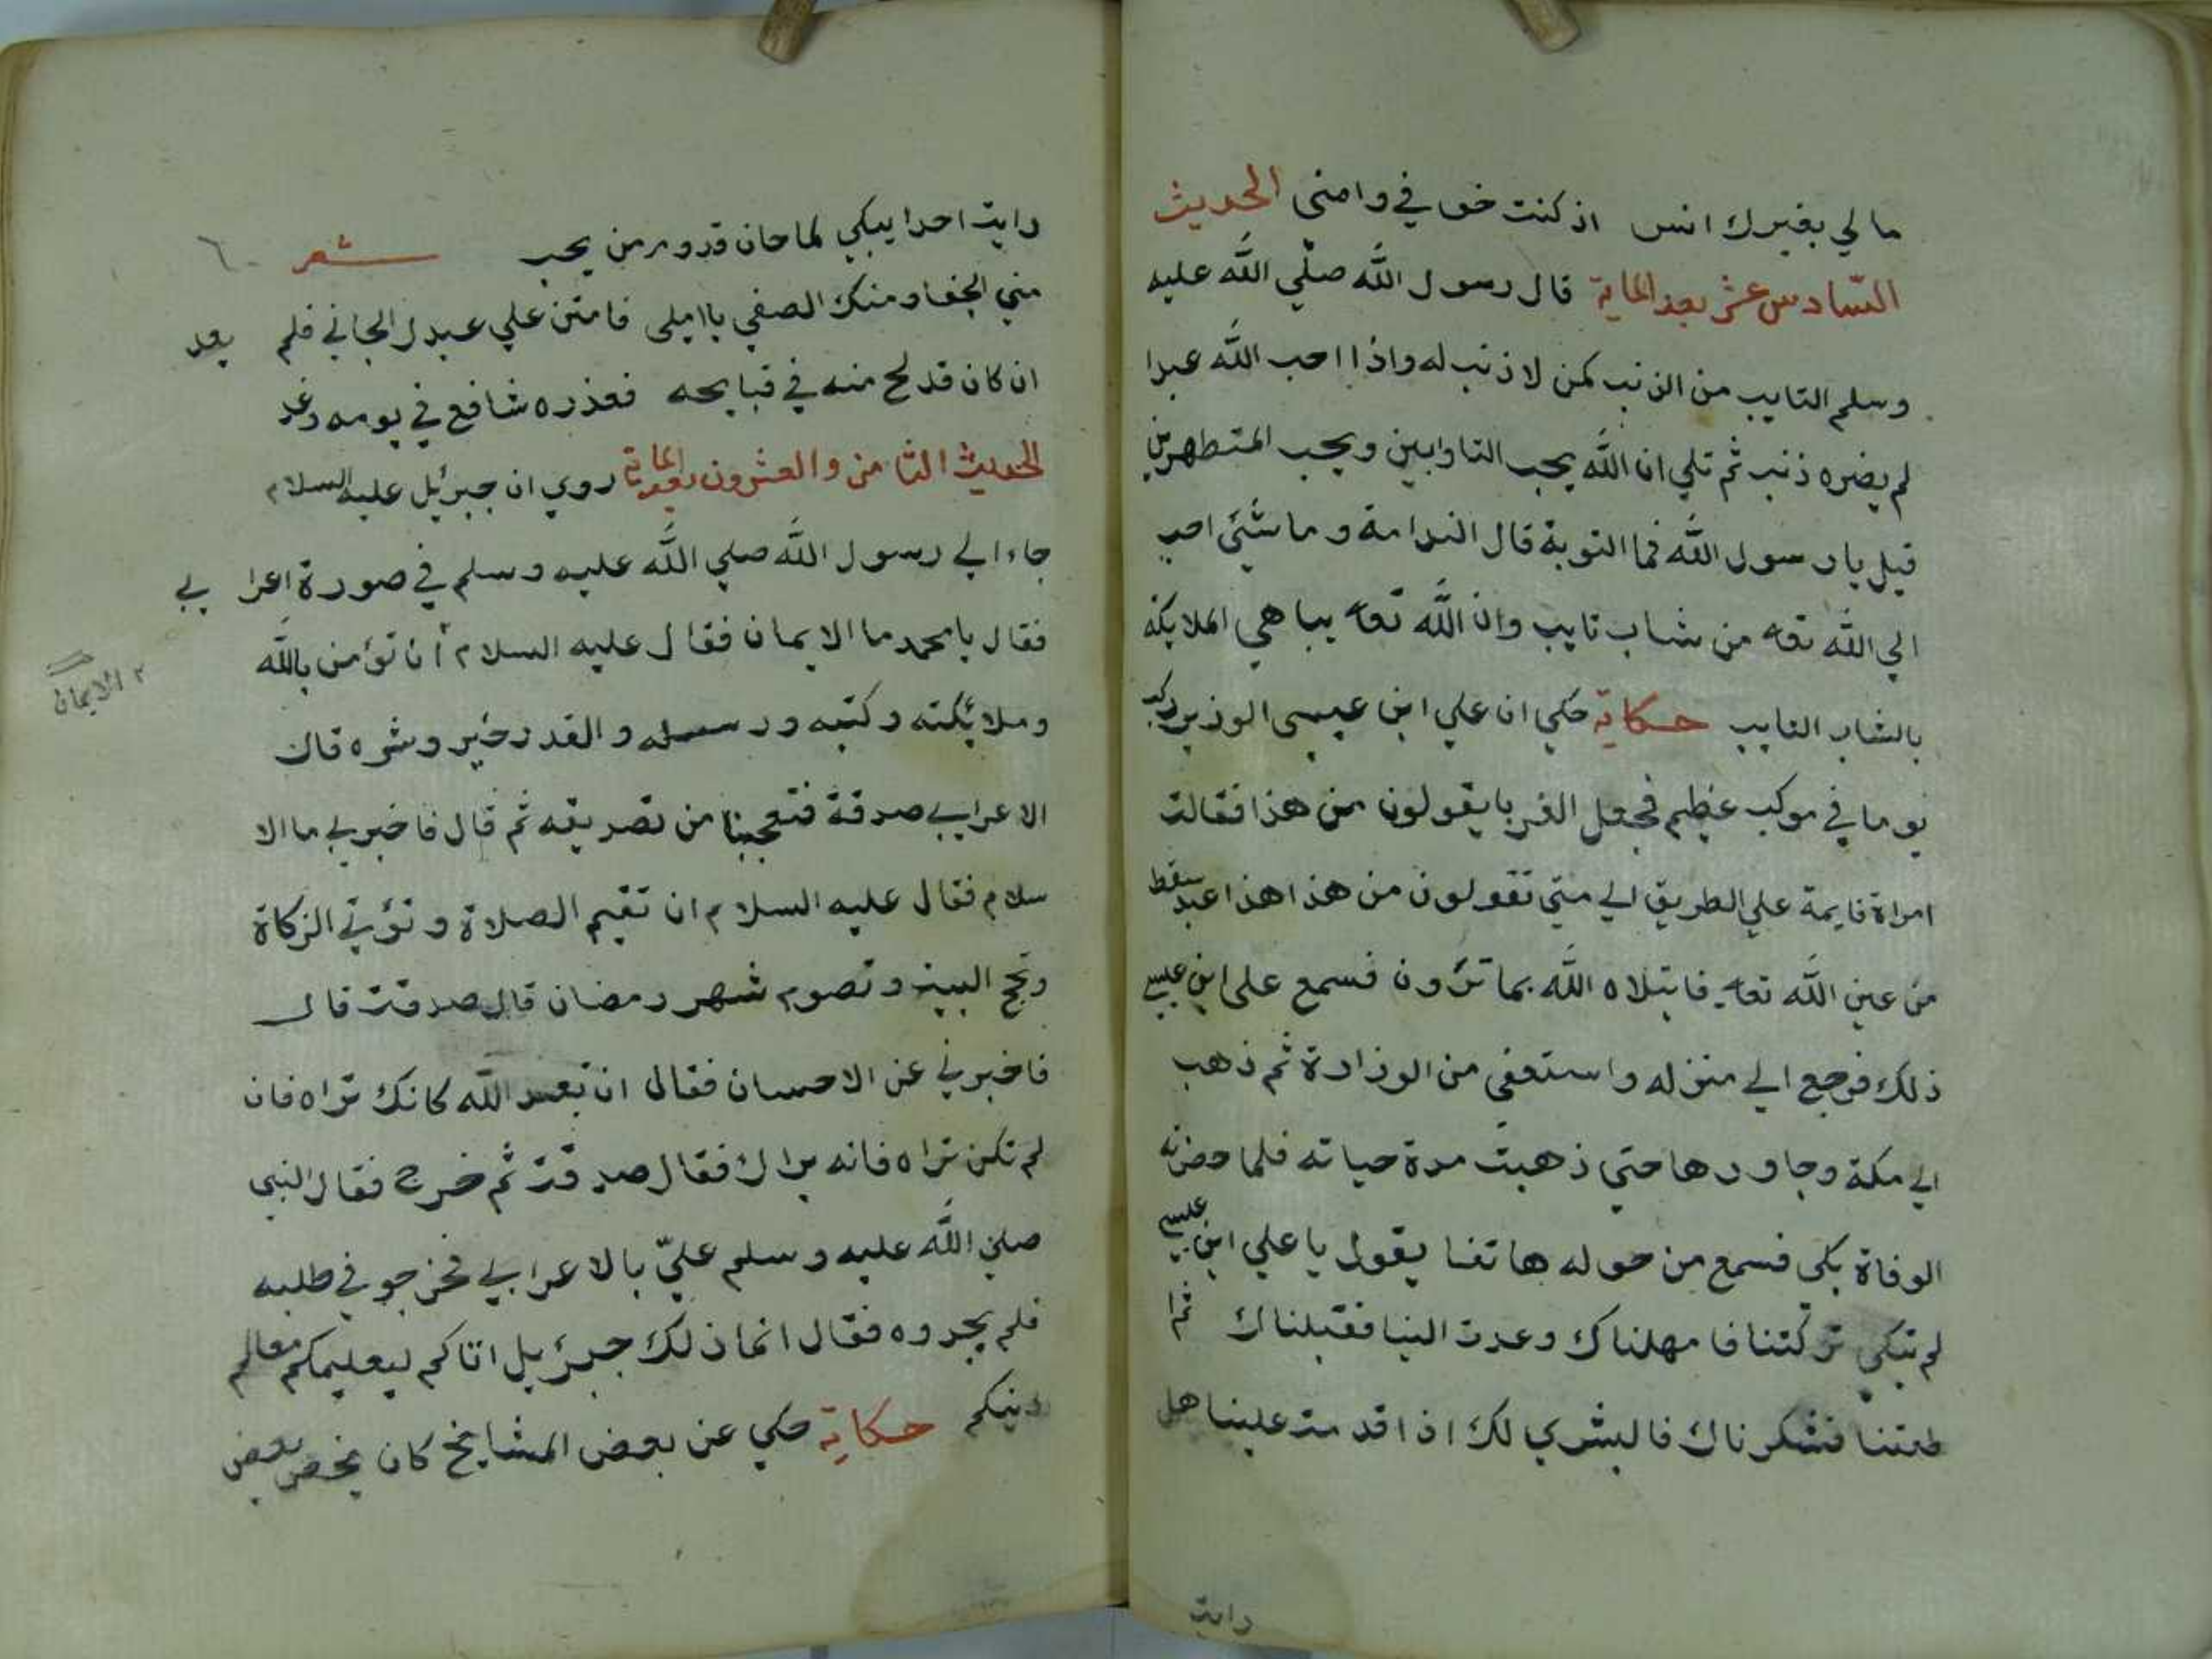 ما لي بغيرك انس اذ كنت خوفي وامني الحديث
السّادس عشر بعد الماية قال رسول اللّه صلّي اللّه عليه
وسلم التايب من الذنب كمن لا ذنب له واذا احب اللّه عبدا
لم يضره ذنب ثم تلي ان اللّه يحب التاوابين ويحب المتطهرين
قيل يا رسول اللّه فما التوبة قال الندامة وما شئ احب
الي اللّه تعا من شاب تايب وان اللّه تعا يباهي الملايكة
بالشاب التايب حكاية حكي ان علي ابن عيسى الوزير ركب
يوما في موكب عظيم فجعل الغربا يقولون من هذا فقالت
امراة قايمة علي الطريق الي متي تقولون من هذا هذا عبد سقط
من عين اللّه تعا فابتلاه اللّه بما ترون فسمع على ابن عيسي
ذلك فرجع الي منزله واستعفى من الوزارة ثم ذهب
الي مكة وجاورها حتي ذهبت مدة حياته فلما حضرته
الوفاة بكى فسمع من حوله هاتفا يقول يا علي ابن عيسي
لم تبكي تركتنا فامهلناك وعدت الينا فقبلناك ثم ا
طعتنا فشكرناك فالبشري لك اذا قدمت علينا هل
رايت
رايت احدا يبكي لما حان قدومه من يحب شعر ٦٠
مني الجفا ومنك الصفي يا املى فامنن علي عبدك الجاني فلم يعد
ان كان قد لح منه في قبايحه فعذره شافع في يومه وغد
الحديث الثامن والعشرون بعد الماية روي ان جبرئيل عليه السلام
جاء الي رسول اللّه صلي اللّه عليه وسلم في صورة اعرا بي
فقال يا محمد ما الايمان فقال عليه السلام أن تؤمن باللّه
وملائكته وكتبه ورسله والقدر خير وشره قال
الاعرابي صدقة فتعجبنا من تصديقه ثم قال فاخبرني ما الا
سلام فقال عليه السلام ان تقيم الصلاة وتؤتي الزكاة
وتحج البيت وتصوم شهر رمضان قال صدقت قال
فاخبرني عن الاحسان فقال ان تعبد اللّه كانك تراه فان
لم تكن تراه فانه يراك فقال صدقت ثم خرج فقال النبي
صلي اللّه عليه وسلم عليّ بالاعرابي فخرجو في طلبه
فلم يجدوه فقال انما ذلك جبرئيل اتاكم ليعليمكم معالم
دينكم حكاية حكي عن بعض المشايخ كان يخص بعض
الايمان